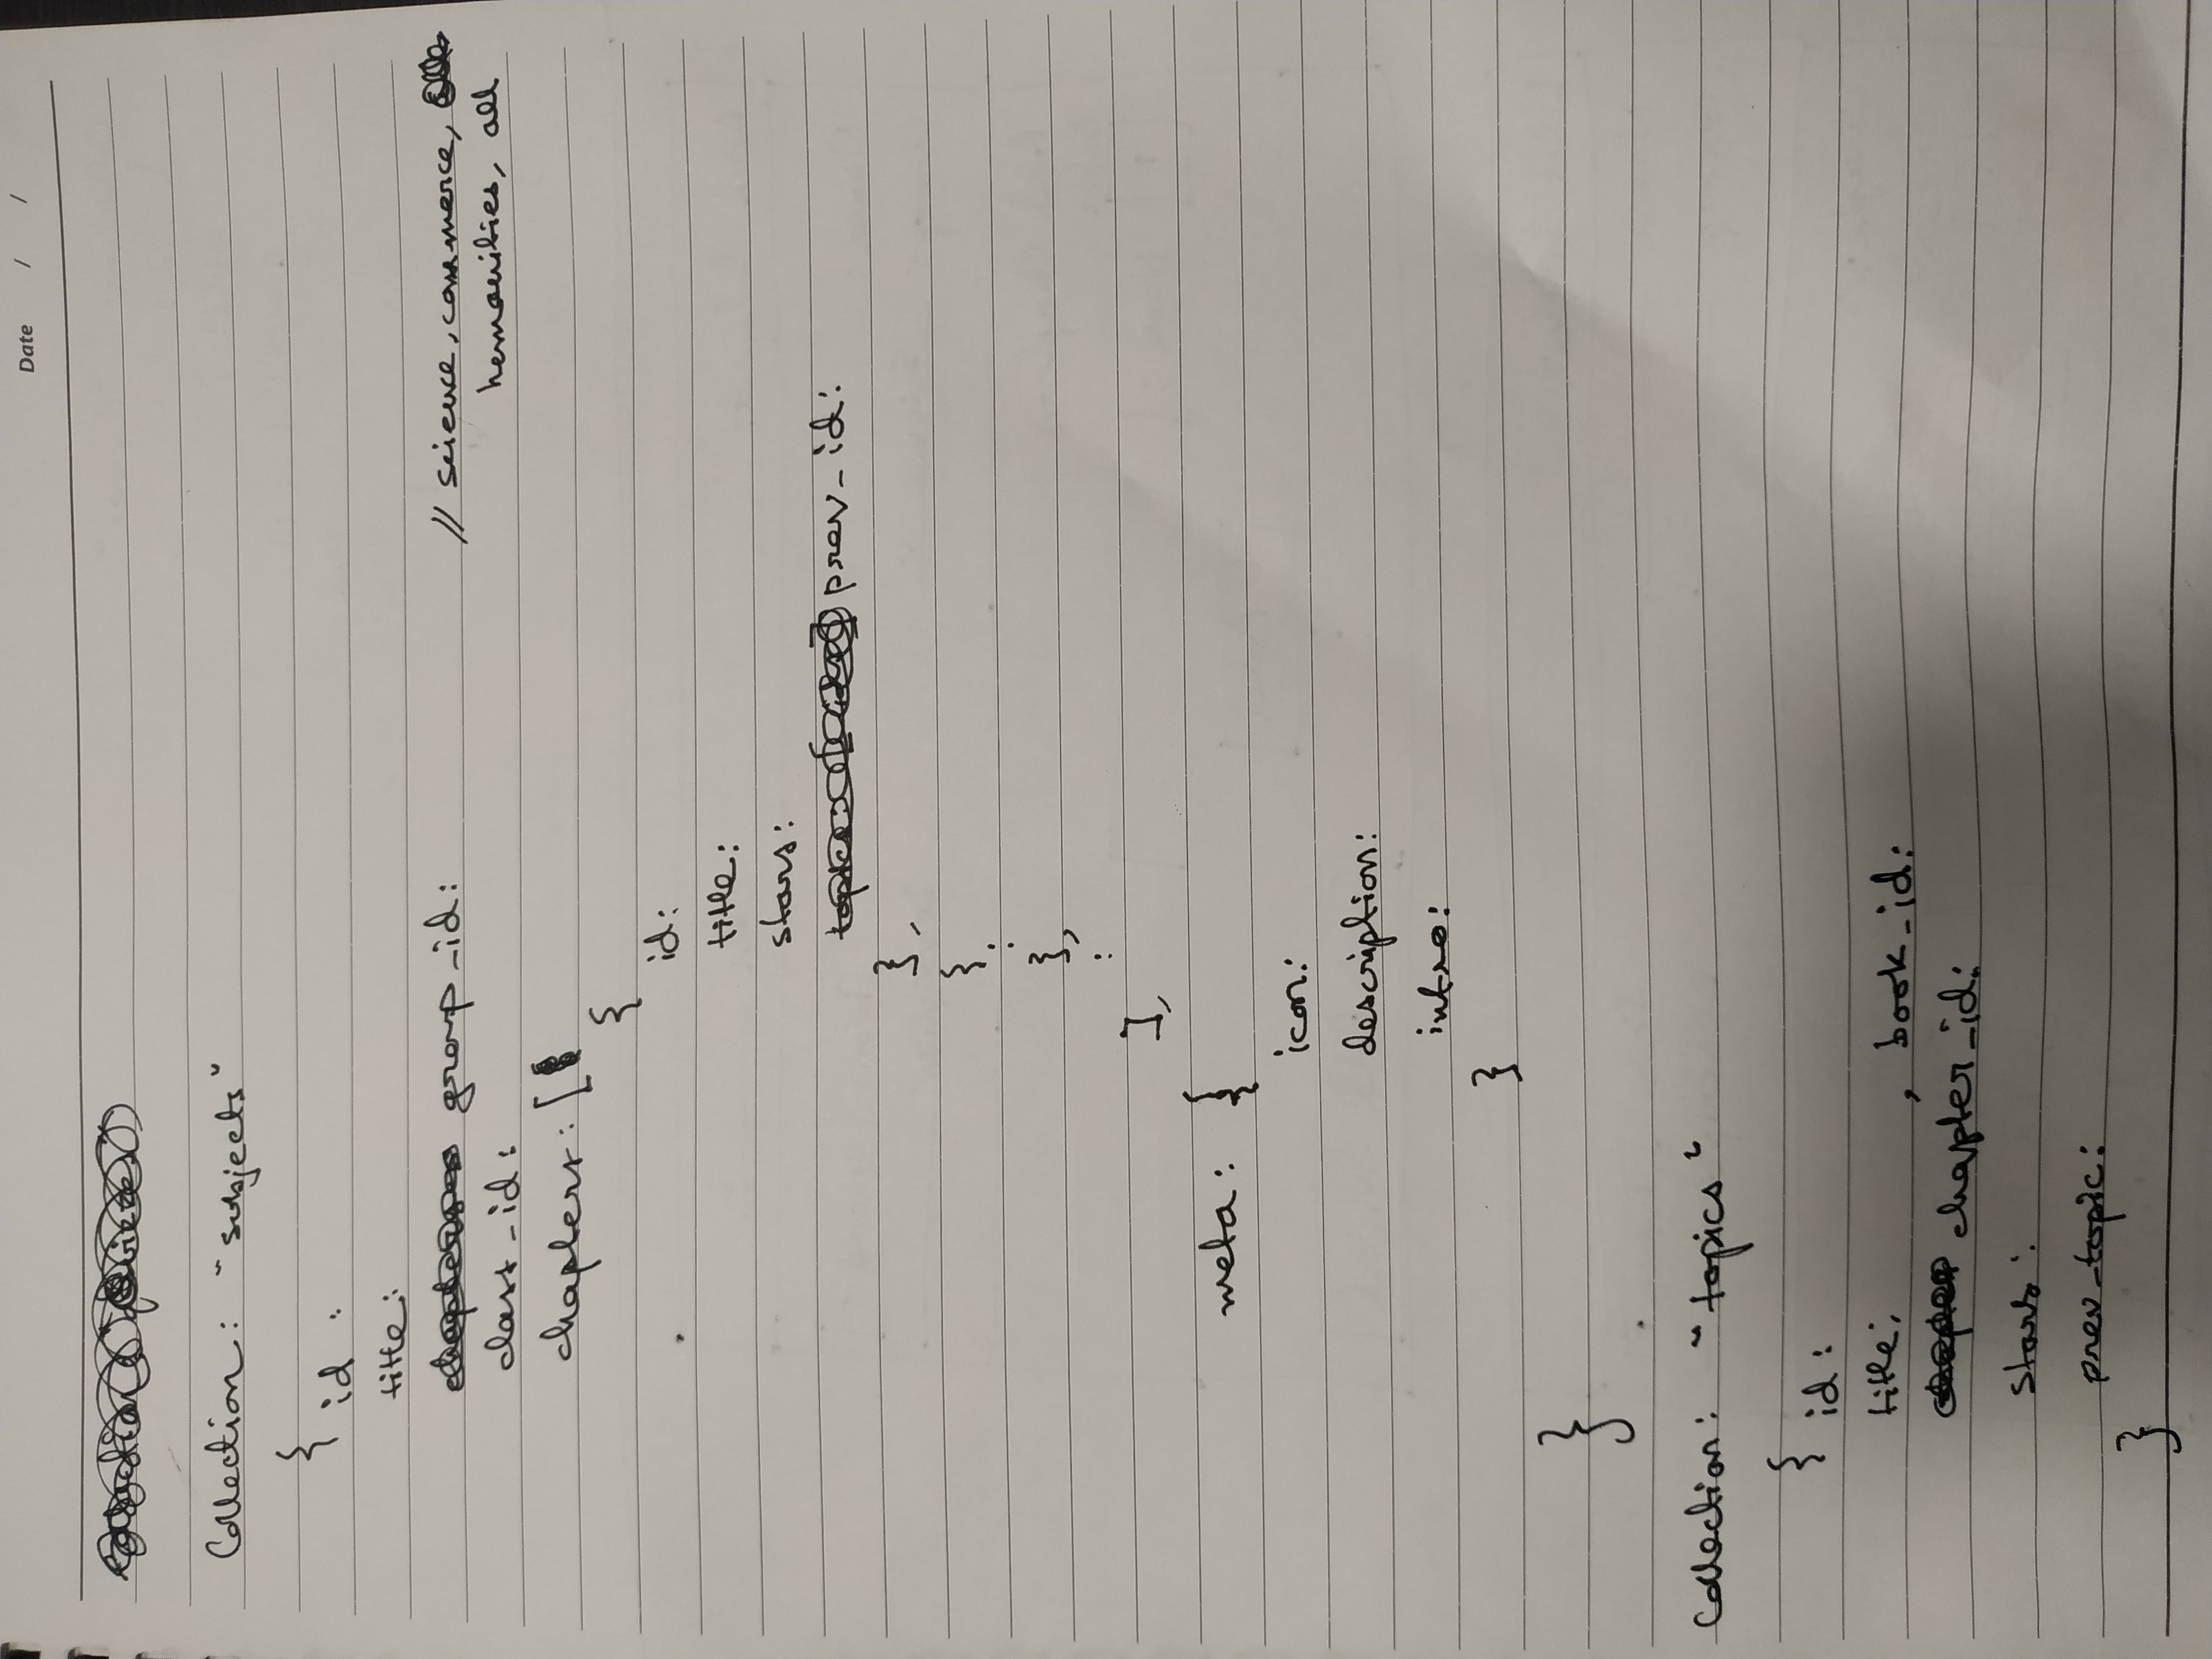 Date / /
Collection: "subjects"
{
id :
title:
group_id: // science, commerce,
hemanities, all
class_id:
chapters: [
{
id:
title:
stars:
prev_id:
},
{
:
},
:
],
meta: {
icon:
description:
intro:
}
}
Collection: "topics"
{
id:
title: , book_id:
chapter_id:
stars:
prev_topic:
}